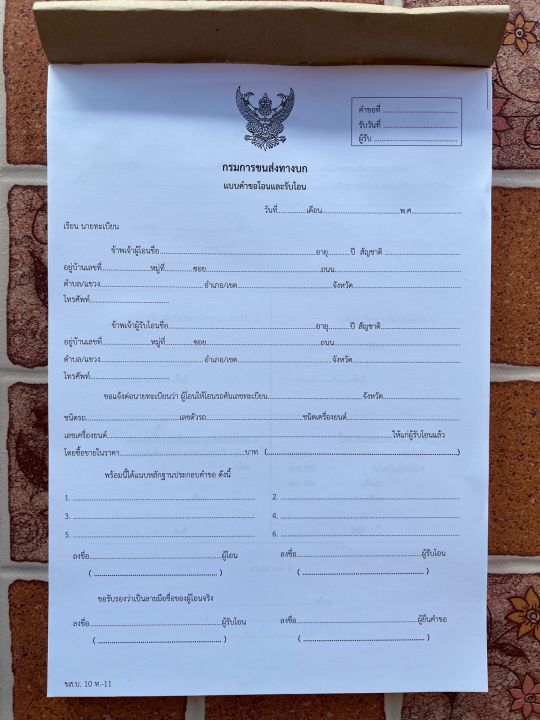 คำขอที่ ........................
รับวันที่ ........................
ผู้รับ ...........................
กรมการขนส่งทางบก
แบบคำขอโอนและรับโอน
วันที่............เดือน................................พ.ศ.....................
เรียน นายทะเบียน
ข้าพเจ้าผู้โอนชื่อ................................................................อายุ.........ปี สัญชาติ ..............................
อยู่บ้านเลขที่....................หมู่ที่............ซอย................................................ถนน.................................................
ตำบล/แขวง............................................อำเภอ/เขต......................................จังหวัด............................................
โทรศัพท์................................
ข้าพเจ้าผู้รับโอนชื่อ.............................................................อายุ.........ปี สัญชาติ................................
อยู่บ้านเลขที่....................หมู่ที่............ซอย................................................ถนน.................................................
ตำบล/แขวง............................................อำเภอ/เขต......................................จังหวัด............................................
โทรศัพท์................................
ขอแจ้งต่อนายทะเบียนว่า ผู้โอนให้โอนรถคันเลขทะเบียน......................................จังหวัด................................
ชนิดรถ......................................เลขตัวรถ......................................ชนิดเครื่องยนต์.............................................
เลขเครื่องยนต์..............................................................................................................ให้แก่ผู้รับโอนแล้ว
โดยซื้อขายในราคา..................................................บาท (..............................................................................)
พร้อมนี้ได้แนบหลักฐานประกอบคำขอ ดังนี้
1. ........................................................................ 2. ........................................................................
3. ........................................................................ 4. ........................................................................
5. ........................................................................ 6. ........................................................................
ลงชื่อ....................................................ผู้โอน ลงชื่อ................................................ผู้รับโอน
( .................................................... ) ( .................................................... )
ขอรับรองว่าเป็นลายมือชื่อของผู้โอนจริง
ลงชื่อ....................................................ผู้รับโอน ลงชื่อ................................................ผู้ยื่นคำขอ
( .................................................... ) ( .................................................... )
ขส.บ. 10 ท.-11